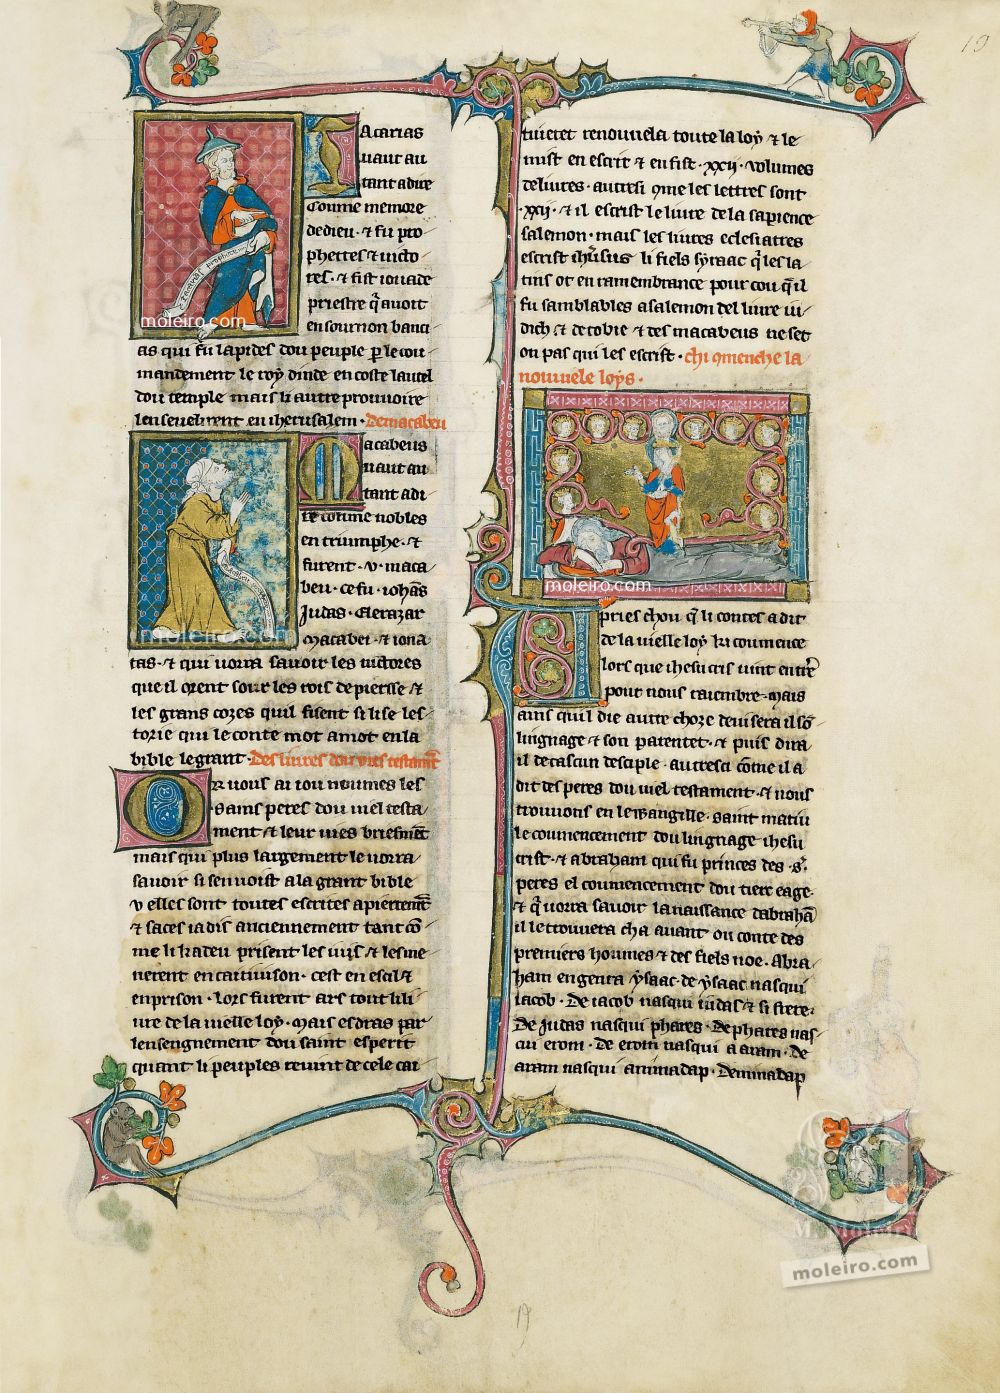 19
Zacarias
vaut au
tant a dire
Coume memore
de dieu · et fu pro
phettes et victo
res · et fist ioiade
priestre q̃ avoit
en sournon banci
as qui fu lapides dou peuple p̱ le cou
mandement le roy dinde en coste lautel
dou temple mais li autre provvoire
lensevelirent en iherusalem · De macabeu
Macabeus
vaut au
tant adi
re coume nobles
en triumphe · et
furent · v · maca
beu · ce fu · ioha̅s
Judas · Elerazar
Macabei · et iona
tas · et qui vorra savoir les victores
que il orent sour les rois de piersse et
les grans cozes quil fisent si lise les
torie qui le conte mot a mot en la
bible le grant · Des livres dou vies testam̅t
Or vous ai iou noumes les
sains peres dou viel testa
ment et leur vies briefmẽt
mais qui plus largement le vorra
savoir si sen voist a la grant bible
v elles sont toutes escrites apiertemẽt
et saces iadis anciennement tant cõ
me li kadeu prisent les iuis et les me
nerent en caitivison · cest en escil et
en prison · lors furent ars tout li li
vre de la vielle loy · Mais esdras par
lensengnement dou saint esperit
quant li peuples revint de cele cai
tivetet renouvela toute la loy et le
mist en escrit et en fist · xxij · volumes
de livres · autresi ɔme les lettres sont
· xxij · et il escrist le livre de la sapience
salemon · mais les livres eclesiastres
escrist ihũsus li fiels syraac q̃ les la
tins ot en ramembrance pour cou q̃ il
fu samblables a salemon del livre iu
dich et de tobie et des macabeus ne set
on pas qui les escrist · Chi ɔmenche la
nouvele loys ·
Apries chou q̃ li contes a dit
de la vielle loy ki coumence
lors que ihesucris vint en t̃re
pour nous raiembre · Mais
ains quil die autre choze devisera il sõ
lingnage et son parentet · et puis dira
il de cascun desciple · autresi cõme il a
dit des peres dou viel testament · et nous
trouvons en lewangille · saint matiu
le coumencement dou lingnage ihesu
crist · et abraham qui fu princes des · s ·
peres el coumencement dou tierc eage ·
et q̃ vorra savoir la naissance dabrahã
il le trouvera cha avant ou conte des
premiers houmes et des fiels noe · Abra
ham engenra ysaac · de ysaac nasqui
iacob · De iacob nasqui iudas et si frere ·
De Judas nasqui phares · De phares nas
cui erom · De erom nasqui aaram · De
aram nasqui aminadap · Deminadap
19
moleiro.com
moleiro.com
moleiro.com
M. Moleiro
moleiro.com